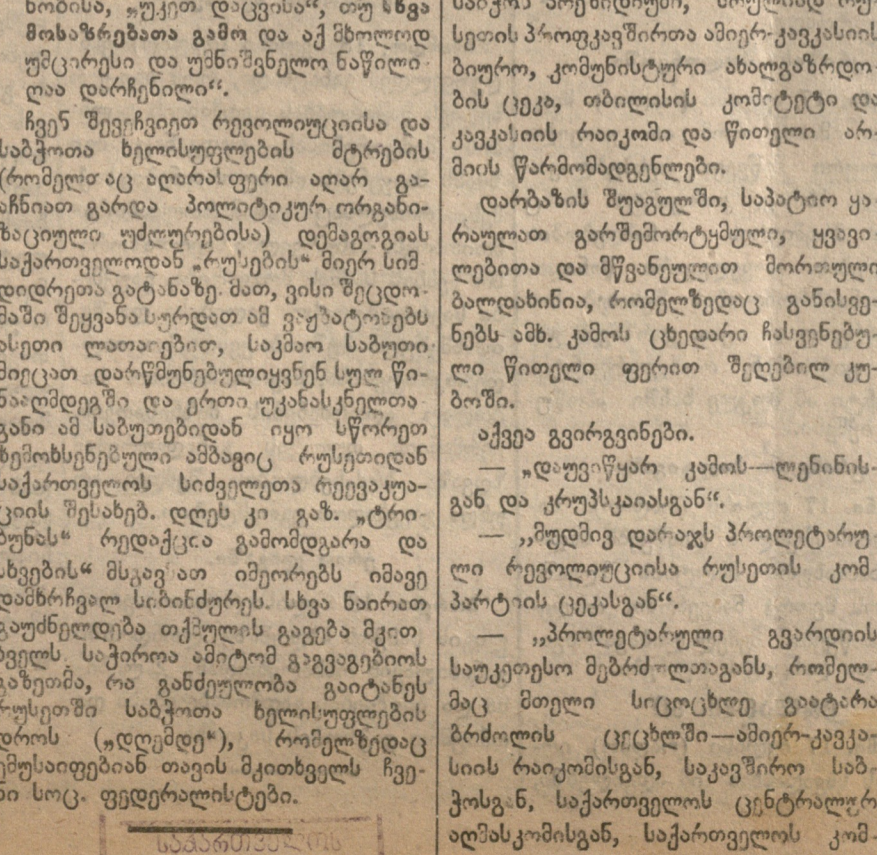 ნობისა, „უკეთ დაცვისა“, თუ სხვა
მოსაზრებათა გამო და აქ მხოლოდ
უმცირესი და უმნიშვნელო ნაწილი
ღაა დარჩენილი“.
ჩვენ შევეჩვიეთ რევოლიუციისა და
საბჭოთა ხელისუფლების მტრების
(რომელთაც აღარაფერი აღარ გა-
აჩნიათ გარდა პოლიტიკურ ორგანი-
ზაციული უძლურებისა) დემაგოგიას
საქართველოდან „რუსების“ მიერ სიმ
დიდრეთა გატანაზე. მათ, ვისი შეცდო-
მაში შეყვანა სურდათ ამ ვაჟბატონებს
ასეთი ღათარებით, საკმაო საბუთი
მიეცათ დარწმუნებულიყვნენ სულ წი-
ნააღმდეგში და ერთი უკანასკნელთა
განი ამ საბუთებიდან იყო სწორეთ
ზემოხსენებული ამბავიც რუსეთიდან
საქართველოს სიძველეთა რეევაკუა-
ციის შესახებ. დღეს კი გაზ. „ტრი-
ბუნას“ რედაქცია გამომდგარა და
სხვების“ მსგავსათ იმეორებს იმავე
დამხრჩვალ სიბინძურეს. სხვა ნაირათ
გაუძნელდება თქმულის გაგება მკით
ხველს. საჭიროა ამიტომ გაგვაგებიოს
გაზეთმა, რა განძეულობა გაიტანეს
რუსეთში საბჭოთა ხელისუფლების
დროს („დღემდე“), რომელზედაც
ემუსაიფებიან თავის მკითხველს ჩვე-
ნი სოც. ფედერალისტები.
საქართველოს
სეთის პროფკავშირთა ამიერ-კავკასიის
ბიურო, კომუნისტური ახალგაზრდო-
ბის ცეკა, თბილისის კომიტეტი და
კავკასიის რაიკომი და წითელი არ-
მიის წარმომადგენლები.
დარბაზის შუაგულში, საპატიო ყა-
რაულათ გარშემორტყმული, ყვავი-
ლებითა და მწვანეულით მორთული
ბალდახინია, რომელზედაც განისვე-
ნებს ამხ. კამოს ცხედარი ჩასვენებუ-
ლი წითელი ფერით შეღებილ კუ-
ბოში.
აქვეა გვირგვინები.
— „დაუვიწყარ კამოს—ლენინის-
გან და კრუპსკაიასგან“.
— „მუდმივ დარაჯს პროლეტარუ-
ლი რევოლიუციისა რუსეთის კომ
პარტიის ცეკასგან“.
— „პროლეტარული გვარდიის
საუკეთესო მებრძოლთაგანს, რომელ-
მაც მთელი სიცოცხლე გაატარა
ბრძოლის ცეცხლში—ამიერ-კავკა-
სიის რაიკომისგან, საკავშირო საბ-
ჭოსგან, საქართველოს ცენტრალურ
აღმასკომისგან, საქართველოს კომ-